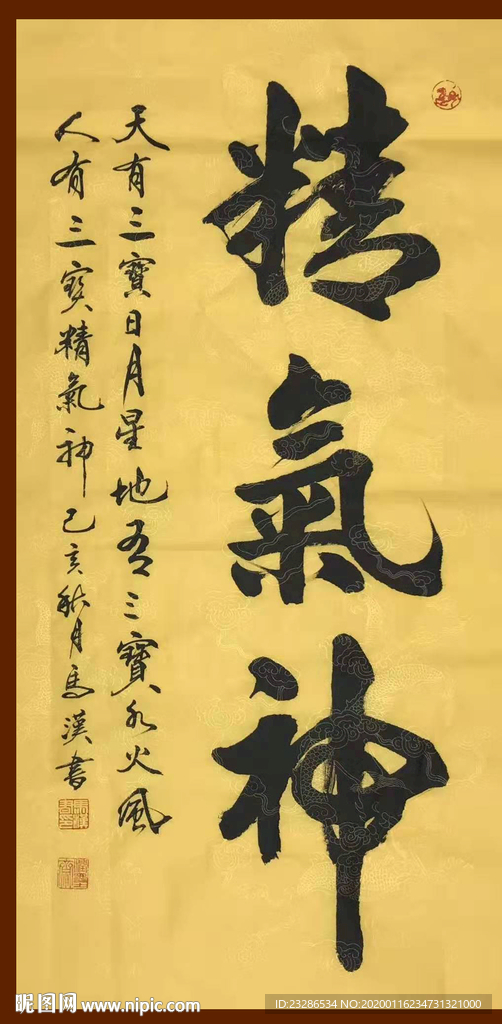 精氣神
天有三寶日月星地有三寶水火風
人有三寳精氣神己亥秋月馬漢書
昵图网 www.nipic.com
ID:23286534 NO:20200116234731321000